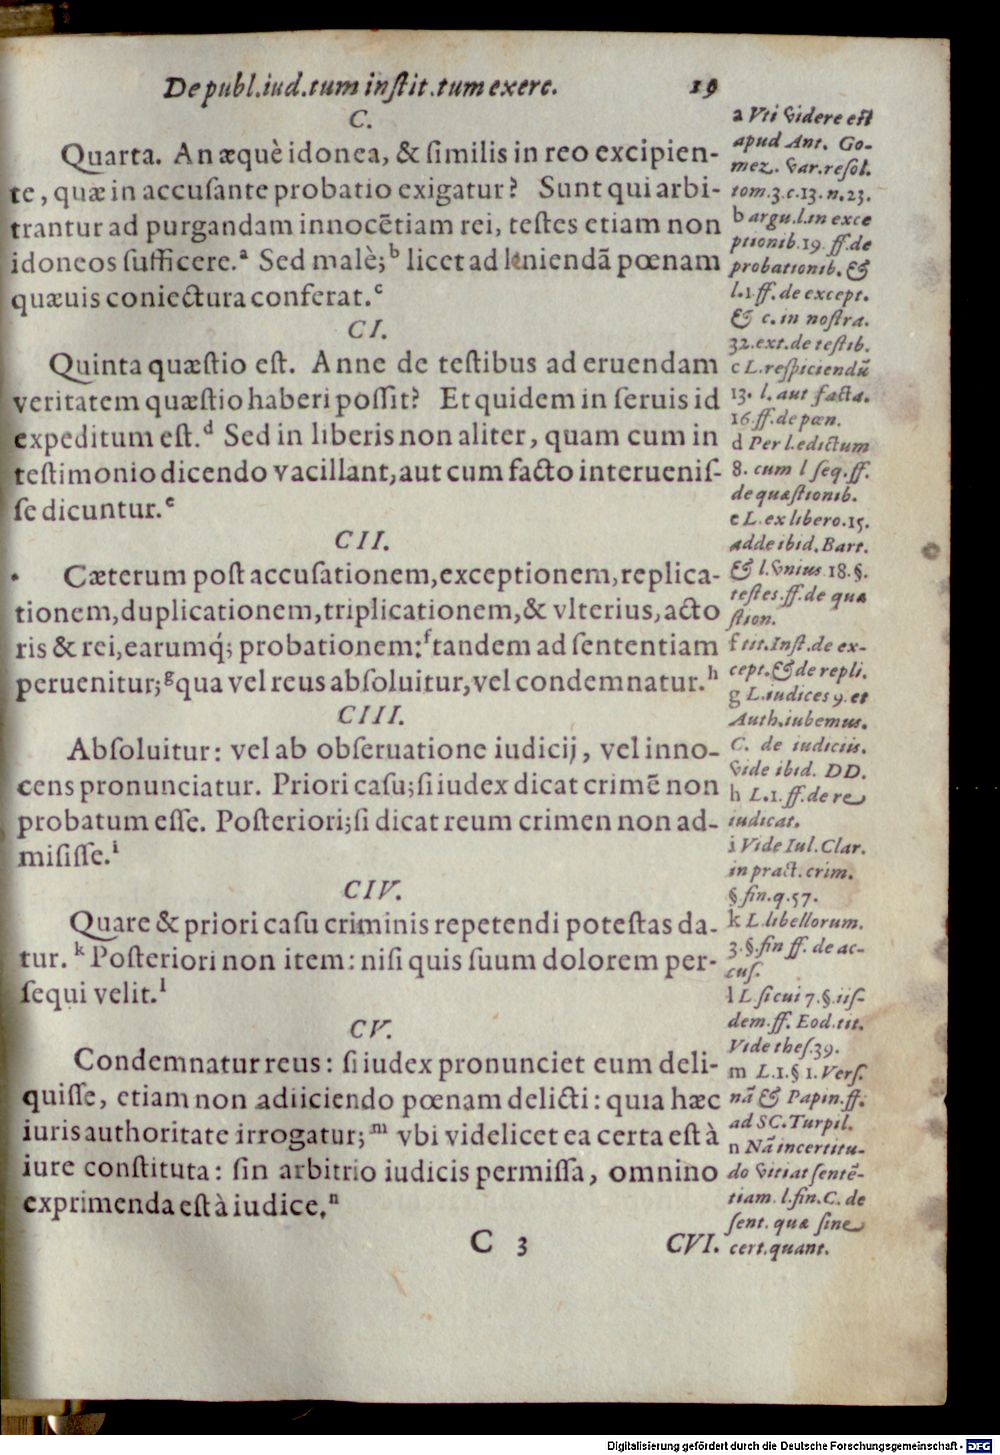 De publ. iud. tum instit. tum exerc. 19
C.
Quarta. An æquè idonea, & ſimilis in reo excipien-
te, quæ in accuſante probatio exigatur? Sunt qui arbi-
trantur ad purgandam innocẽtiam rei, teſtes etiam non
idoneos ſufficere.ᵃ Sed malè;ᵇ licet ad leniendã pœnam
quæuis coniectura conferat.ᶜ
CI.
Quinta quæſtio eſt. Anne de teſtibus ad eruendam
veritatem quæſtio haberi poſſit? Et quidem in ſeruis id
expeditum eſt.ᵈ Sed in liberis non aliter, quam cum in
teſtimonio dicendo vacillant, aut cum facto interueniſ-
ſe dicuntur.ᵉ
CII.
Cæterum poſt accuſationem, exceptionem, replica-
tionem, duplicationem, triplicationem, & vlterius, acto
ris & rei, earumq́; probationem:ᶠ tandem ad ſententiam
peruenitur;ᵍ qua vel reus abſoluitur, vel condemnatur.ʰ
CIII.
Abſoluitur: vel ab obſeruatione iudicij, vel inno-
cens pronunciatur. Priori caſu; ſi iudex dicat crimẽ non
probatum eſſe. Poſteriori; ſi dicat reum crimen non ad-
miſiſſe.ⁱ
CIV.
Quare & priori caſu criminis repetendi poteſtas da-
tur.ᵏ Poſteriori non item: niſi quis ſuum dolorem per-
ſequi velit.ˡ
CV.
Condemnatur reus: ſi iudex pronunciet eum deli-
quiſſe, etiam non adiiciendo pœnam delicti: quia hæc
iuris authoritate irrogatur;ᵐ vbi videlicet ea certa eſt à
iure conſtituta: ſin arbitrio iudicis permiſſa, omnino
exprimenda eſt à iudice.ⁿ
C 3 CVI.
a Vti videre eſt
apud Ant. Go-
mez. var. reſol.
tom. 3. c. 13. n. 23.
b argu. l. in exce
ptionib. 19. ff. de
probationib. &
l. 1. ff. de except.
& c. in noſtra.
32. ext. de teſtib.
c L. reſpiciendũ
13. l. aut facta.
16. ff. de pœn.
d Per l. edictum
8. cum l ſeq. ff.
de quæſtionib.
e L. ex libero. 15.
adde ibid. Bart.
& l. vnius 18. §.
teſtes. ff. de quæ
ſtion.
f tit. Inſt. de ex-
cept. & de repli.
g L. iudices 9. et
Auth. iubemus.
C. de iudiciis.
vide ibid. DD.
h L. 1. ff. de re
iudicat.
i Vide Iul. Clar.
in pract. crim.
§. fin. q. 57.
k L. libellorum.
3. §. fin ff. de ac-
cuſ.
l L. ſi cui 7. §. iiſ-
dem. ff. Eod. tit.
Vide theſ. 39.
m L. 1. § 1. Verſ.
nã & Papin. ff.
ad SC. Turpil.
n Nã incertitu-
do vitiat ſentẽ-
tiam. l. fin. C. de
ſent. quæ ſine
cert. quant.
Digitalisierung gefördert durch die Deutsche Forschungsgemeinschaft - DFG